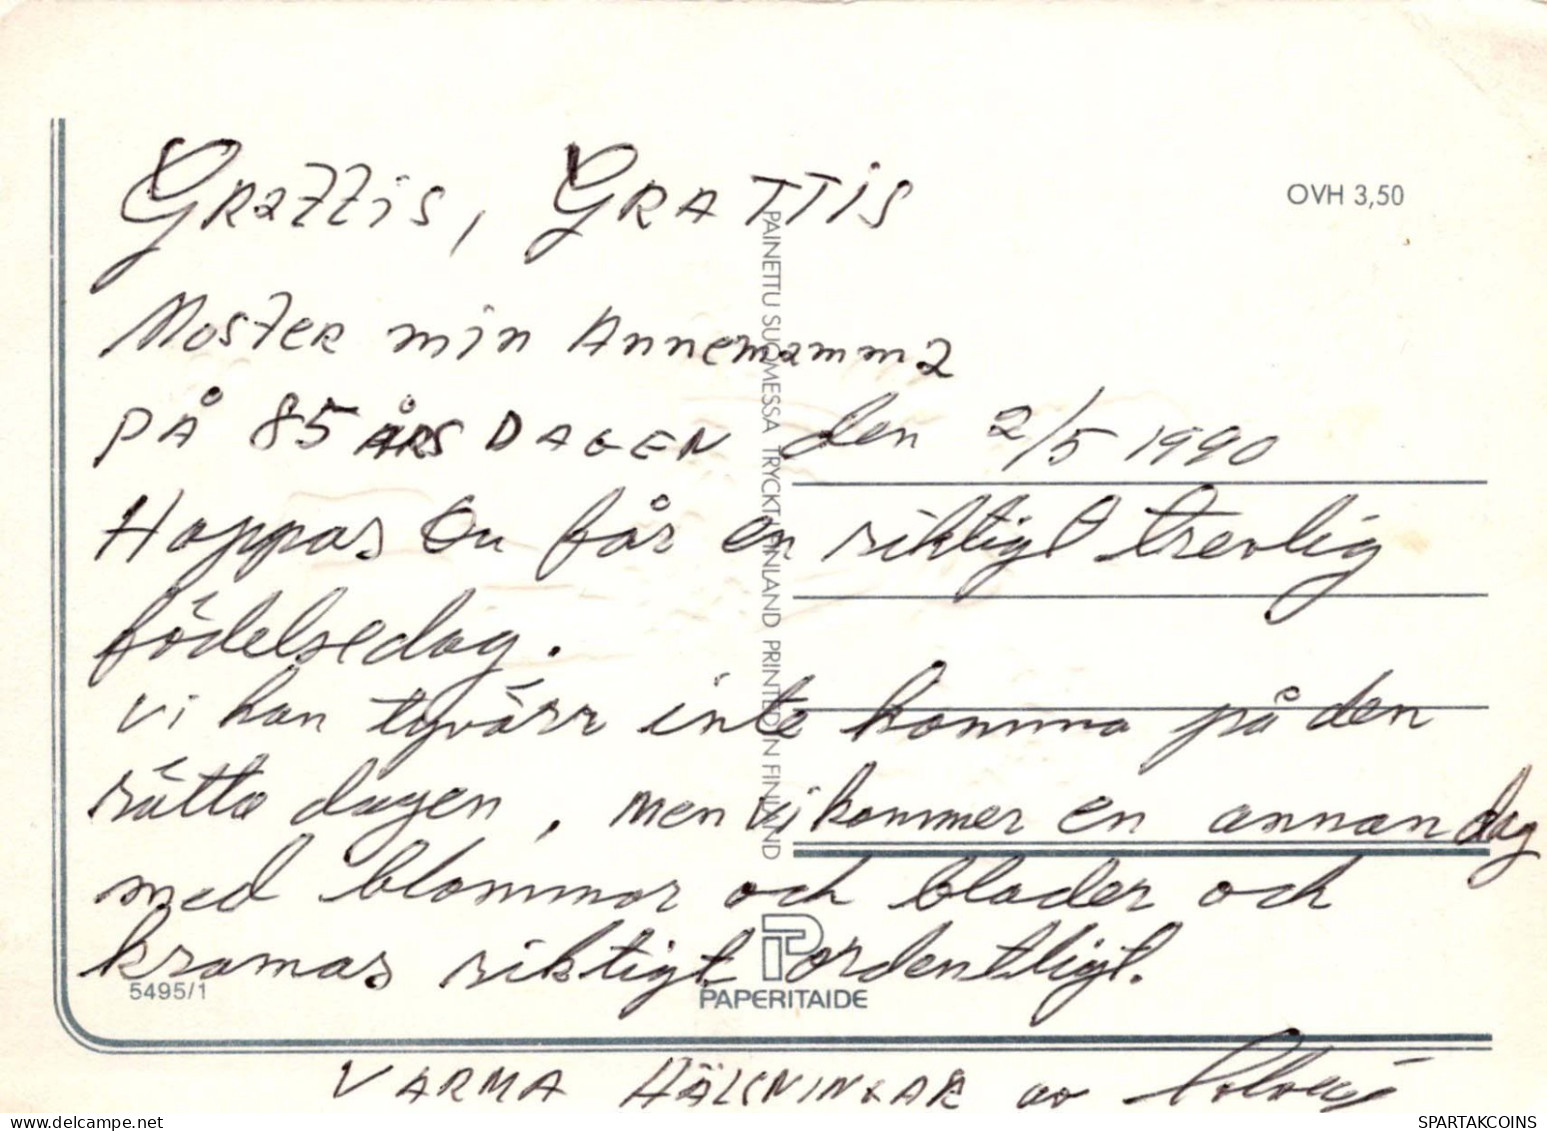 Grazzis, GRATTIS
OVH 3,50
Moster min Annemamma
PÅ 85 ÅRS DAGEN den 2/5 1990
Hoppas Du får en riktigt trevlig
födelsedag.
Vi kan tyvärr inte komma på den
rätta dagen, men vi kommer en annan dag
med blommor och blader och
kramas riktigt ordentligt.
5495/1
PAPERITAIDE
VARMA HÄLSNINGAR av
PAINETTU SUOMESSA TRYCKT I FINLAND PRINTED IN FINLAND
SPARTAKCOINS